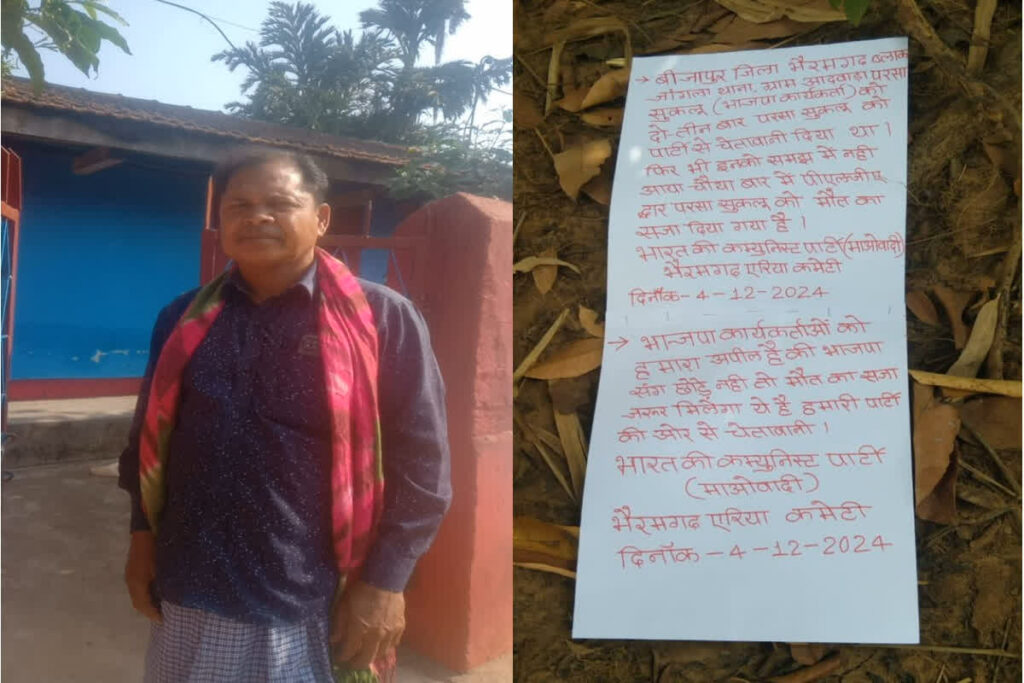 → बीजापुर जिला भैरमगढ ब्लाक
जांगला थाना, ग्राम आदवाड़ा परसा
सुकलू (भाजपा कार्यकर्ता) को
दो-तीन बार परसा सुकलू को
पार्टी से चेतावनी दिया था।
फिर भी इनको समझ में नही
आया चौथा बार में पीएलजीए
द्वार परसा सुकलू को मौत का
सजा दिया गया है।
भारत की कम्युनिस्ट पार्टी (माओवादी)
भैरमगढ एरिया कमेटी
दिनाँक-4-12-2024
→ भाजपा कार्यकर्ताओं को
हमारा अपील है की भाजपा
संग छोड़े नही तो मौत का सजा
जरूर मिलेगा ये है हमारी पार्टी
की ओर से चेतावनी।
भारत की कम्युनिस्ट पार्टी
(माओवादी)
भैरमगढ एरिया कमेटी
दिनाँक-4-12-2024